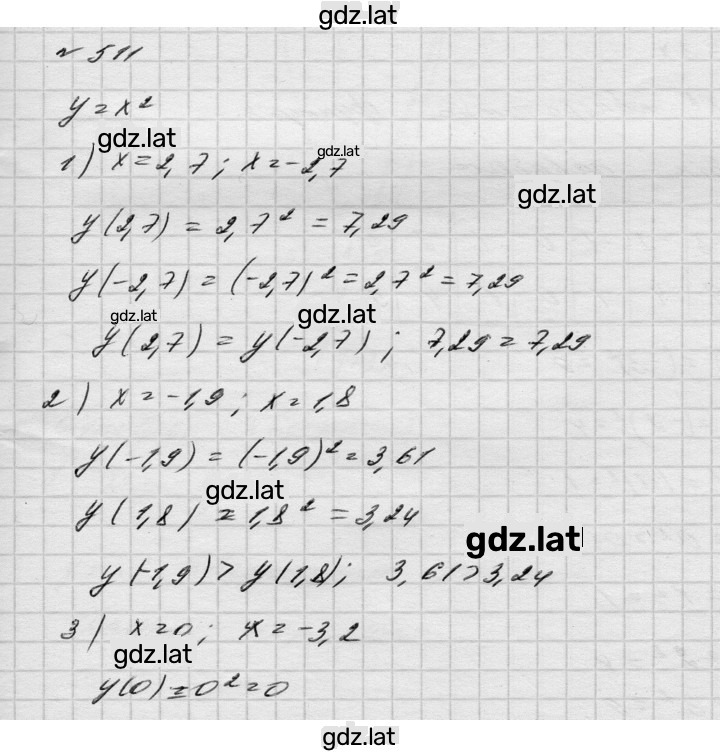 gdz.lat
№ 511
y = x²
gdz.lat
1) x = 2,7; x = -2,7
gdz.lat
gdz.lat
y(2,7) = 2,7² = 7,29
y(-2,7) = (-2,7)² = 2,7² = 7,29
gdz.lat
gdz.lat
y(2,7) = y(-2,7); 7,29 = 7,29
2) x = -1,9; x = 1,8
y(-1,9) = (-1,9)² = 3,61
gdz.lat
y(1,8) = 1,8² = 3,24
gdz.lat
y(-1,9) > y(1,8); 3,61 > 3,24
3) x = 0; x = -3,2
gdz.lat
y(0) = 0² = 0
gdz.lat